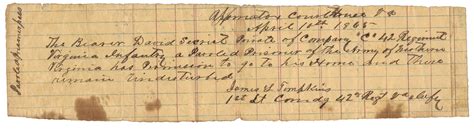 Appomatox Court House Va
April 10th 1865
The Bearer David Secrist Private of Company "C" 42 Regiment
Virginia Infantry a Paroled Prisoner of the Army of Northern
Virginia has Permission to go to his Home and there
remain Undisturbed
James L Tompkins
1st Lt Comdg 42nd Regt Va Infy